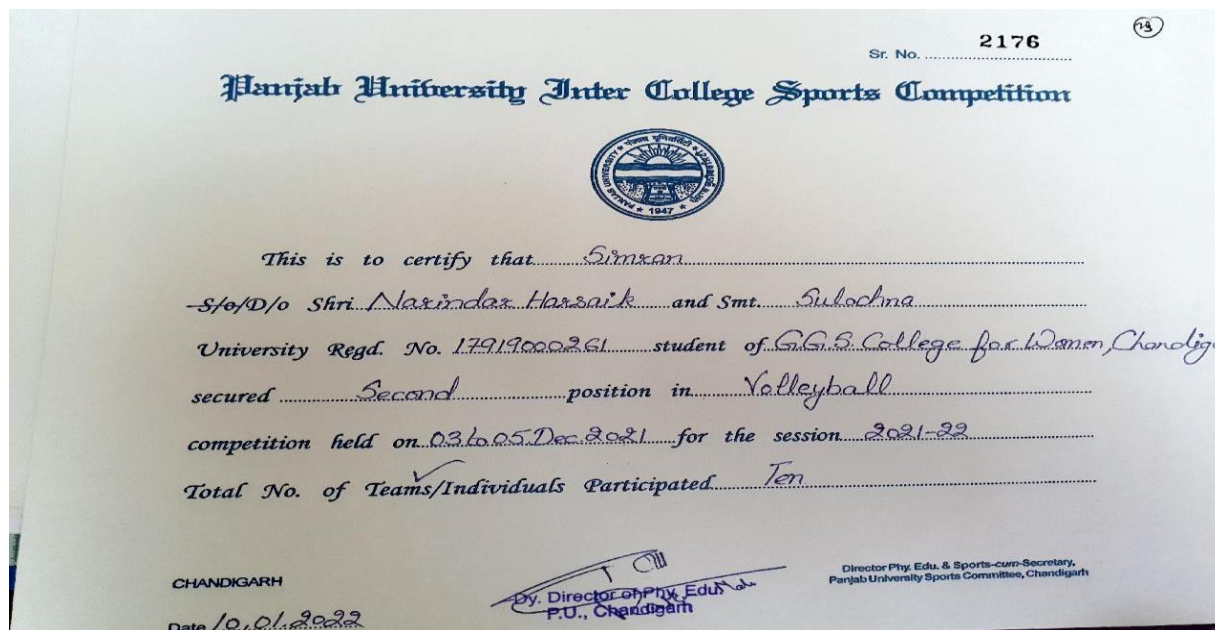 29
Sr. No. 2176
Panjab University Inter College Sports Competition
PANJAB UNIVERSITY
★ 1947 ★
This is to certify that Simran
S/o/D/o Shri Narindar Harsaik and Smt. Sulochna
University Regd. No. 17919000261 student of G.G.S. College for Women, Chandig
secured Second position in Volleyball
competition held on 03 to 05 Dec. 2021 for the session 2021-22
Total No. of Teams/Individuals Participated Ten
CHANDIGARH
Date 10.01.2022
Dy. Director of Phy. Edu.
P.U., Chandigarh
Director Phy. Edu. & Sports-cum-Secretary,
Panjab University Sports Committee, Chandigarh